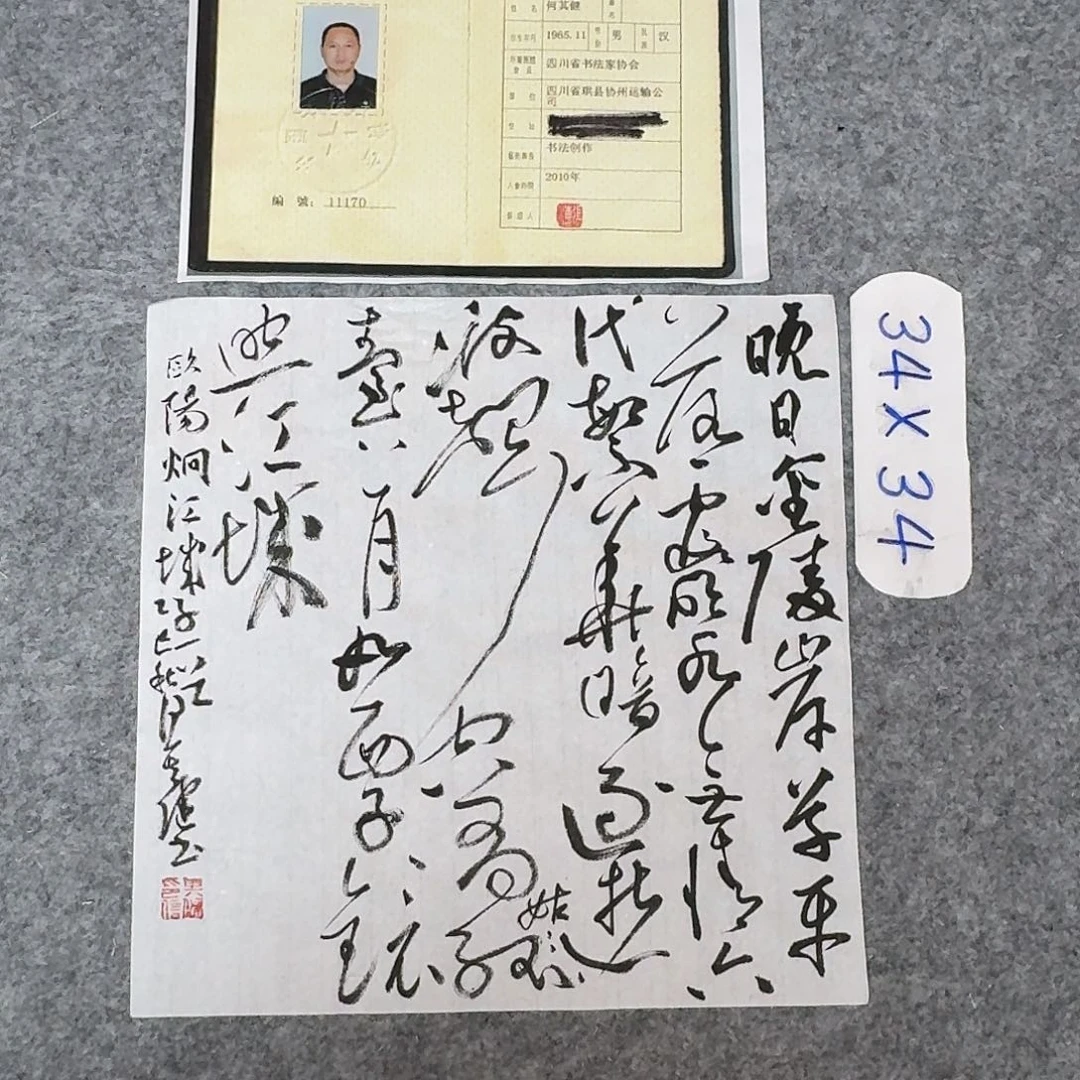 姓名 何其健
1965.11 男 汉
四川省书法家协会
四川省珙县协州运输公
司
书法创作
2010年
編號：11170
34 X 34
晚日金陵岸草平
落霞明水無情六
代繁華暗逐逝
波聲空有姑蘇
臺上月如西子鏡
照江城
歐陽炯江城子 何其健书